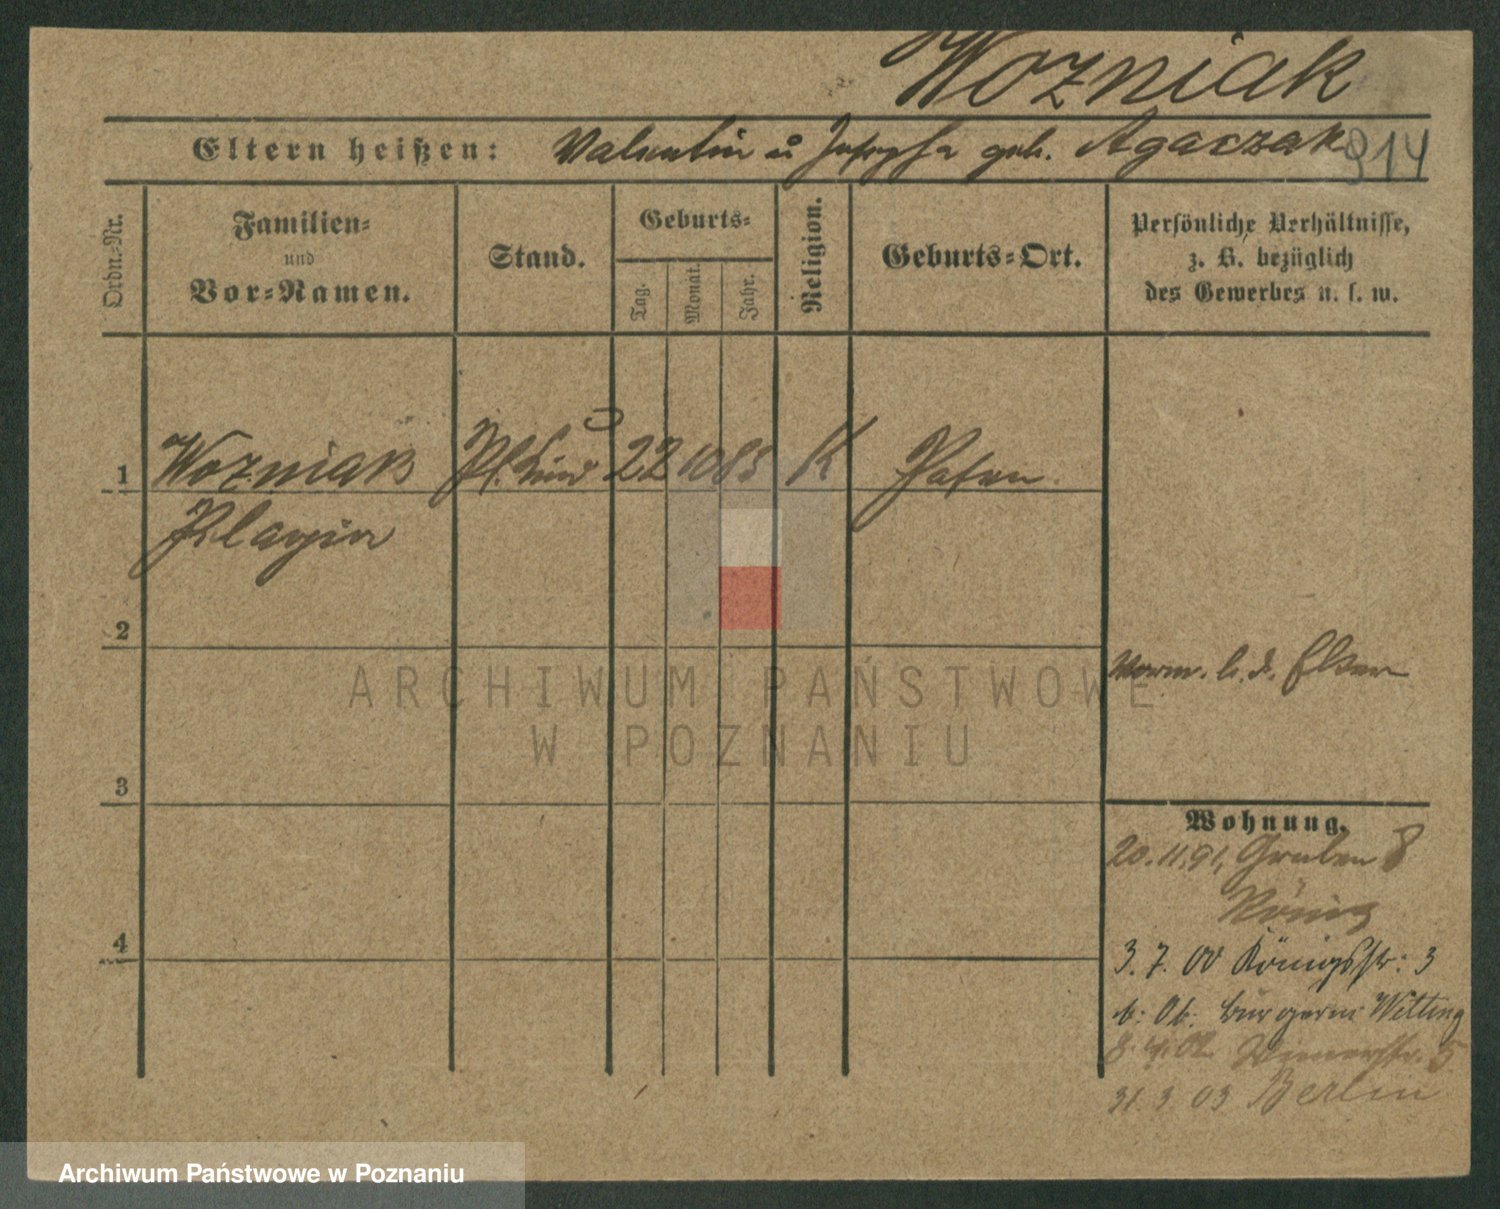 Wozniak
Eltern heißen: Valentin u Josepha geb. Agaczak
914
Ordn.-Nr.
Familien-
und
Vor-Namen.
Stand.
Geburts-
Tag.
Monat.
Jahr.
Religion.
Geburts-Ort.
Persönliche Verhältnisse,
z. B. bezüglich
des Gewerbes u. s. w.
1 Wozniak 22 10 85 K Posen
2
3
4
Vorm. b. d. Eltern
Wohnung.
20. 11. 91, Graben 8
3. 7. 00 Königsstr: 3
b: Ob. bürgerm: Witting
8. 4. 02 5
31. 3 03 Berlin
ARCHIWUM PAŃSTWOWE
W POZNANIU
Archiwum Państwowe w Poznaniu